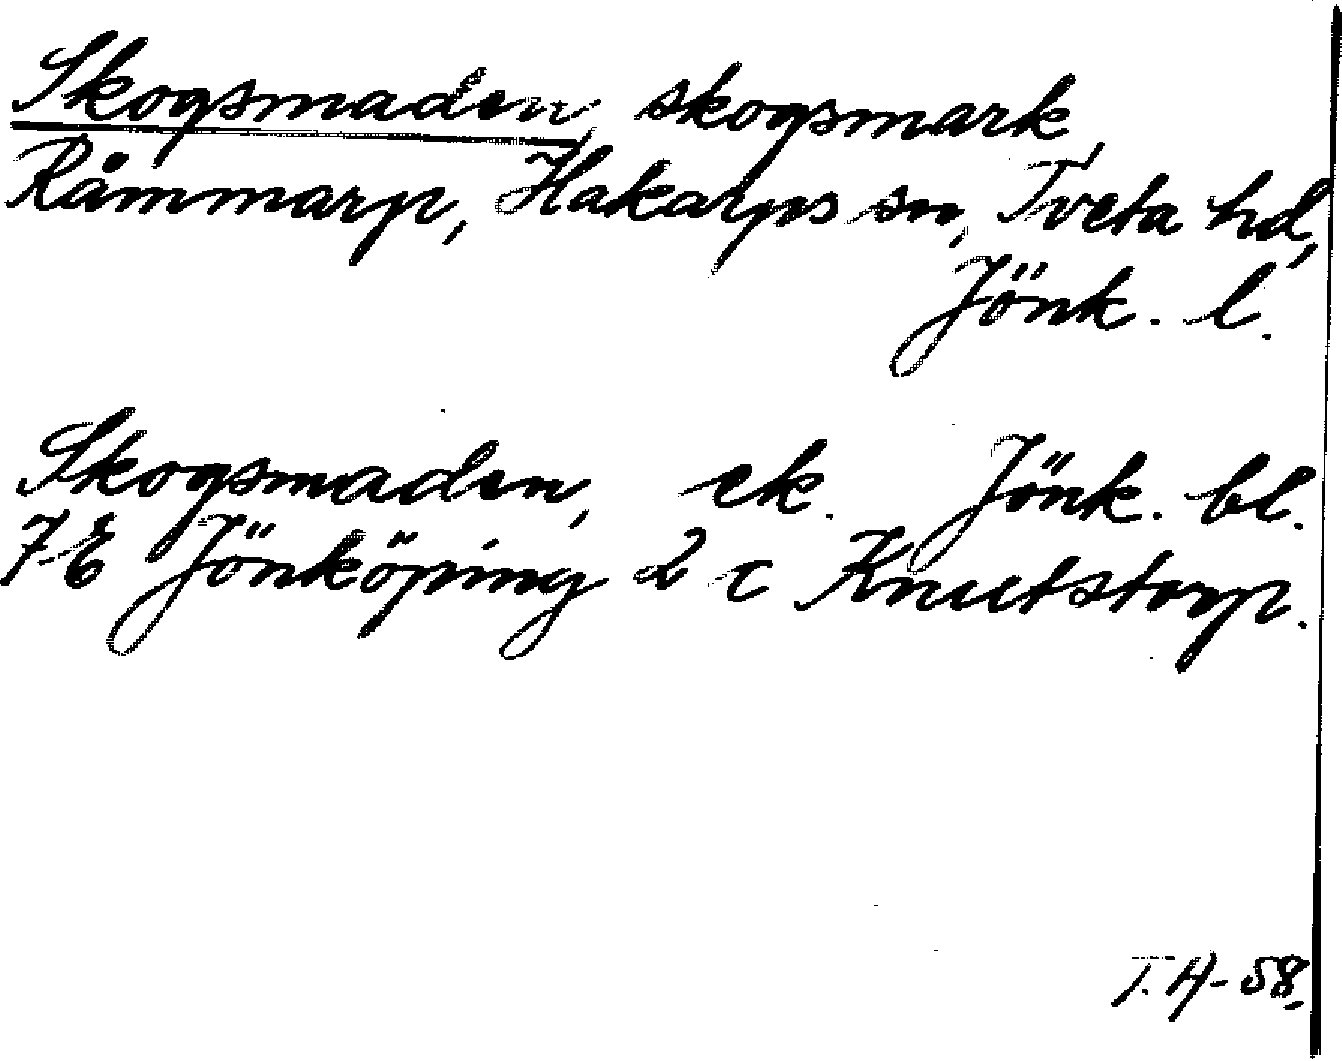 Skogsmaden, skogsmark,
Råmmarp, Hakarps sn, Tveta hd,
Jönk. l.
Skogsmaden, ek. Jönk. bl.
7E Jönköping 2 c Knutstorp.
T.H-58.